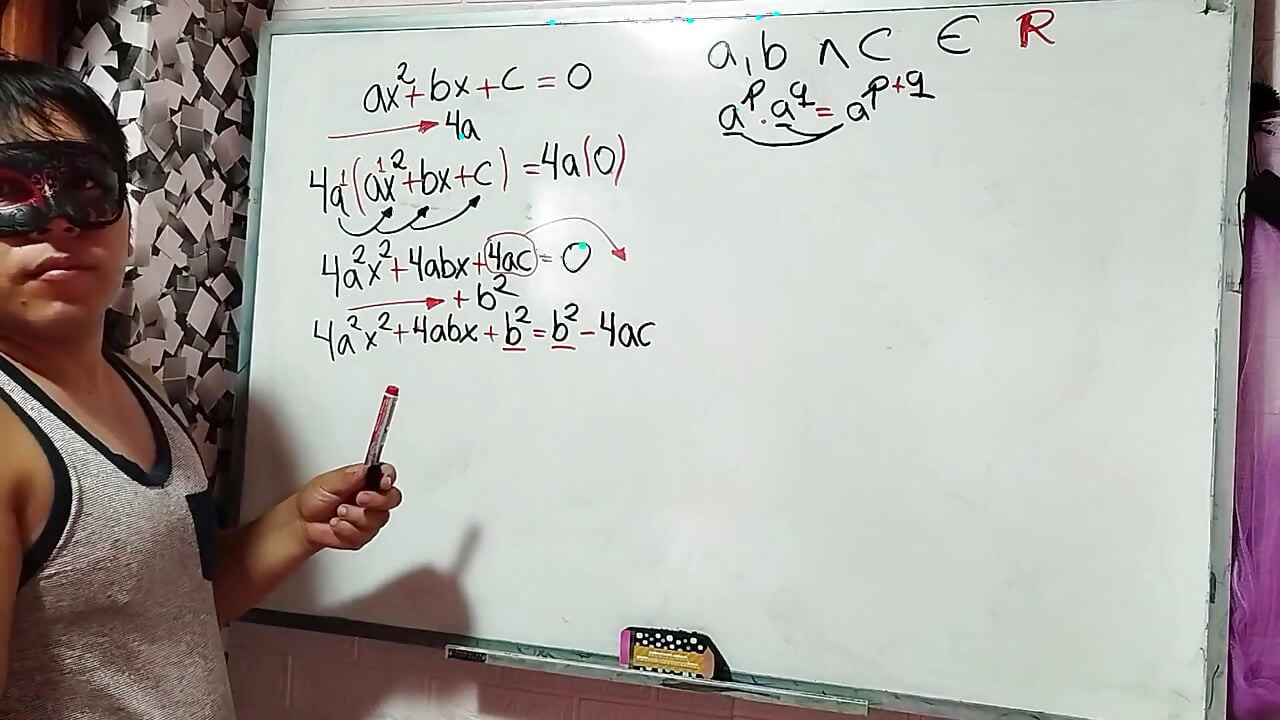 ax²+bx+c=0
4a
4a¹(a¹x²+bx+c)=4a(0)
4a²x²+4abx+4ac=0
+b²
4a²x²+4abx+b²=b²-4ac
a,b ∧ C ∈ R
a^p·a^q=a^p+q